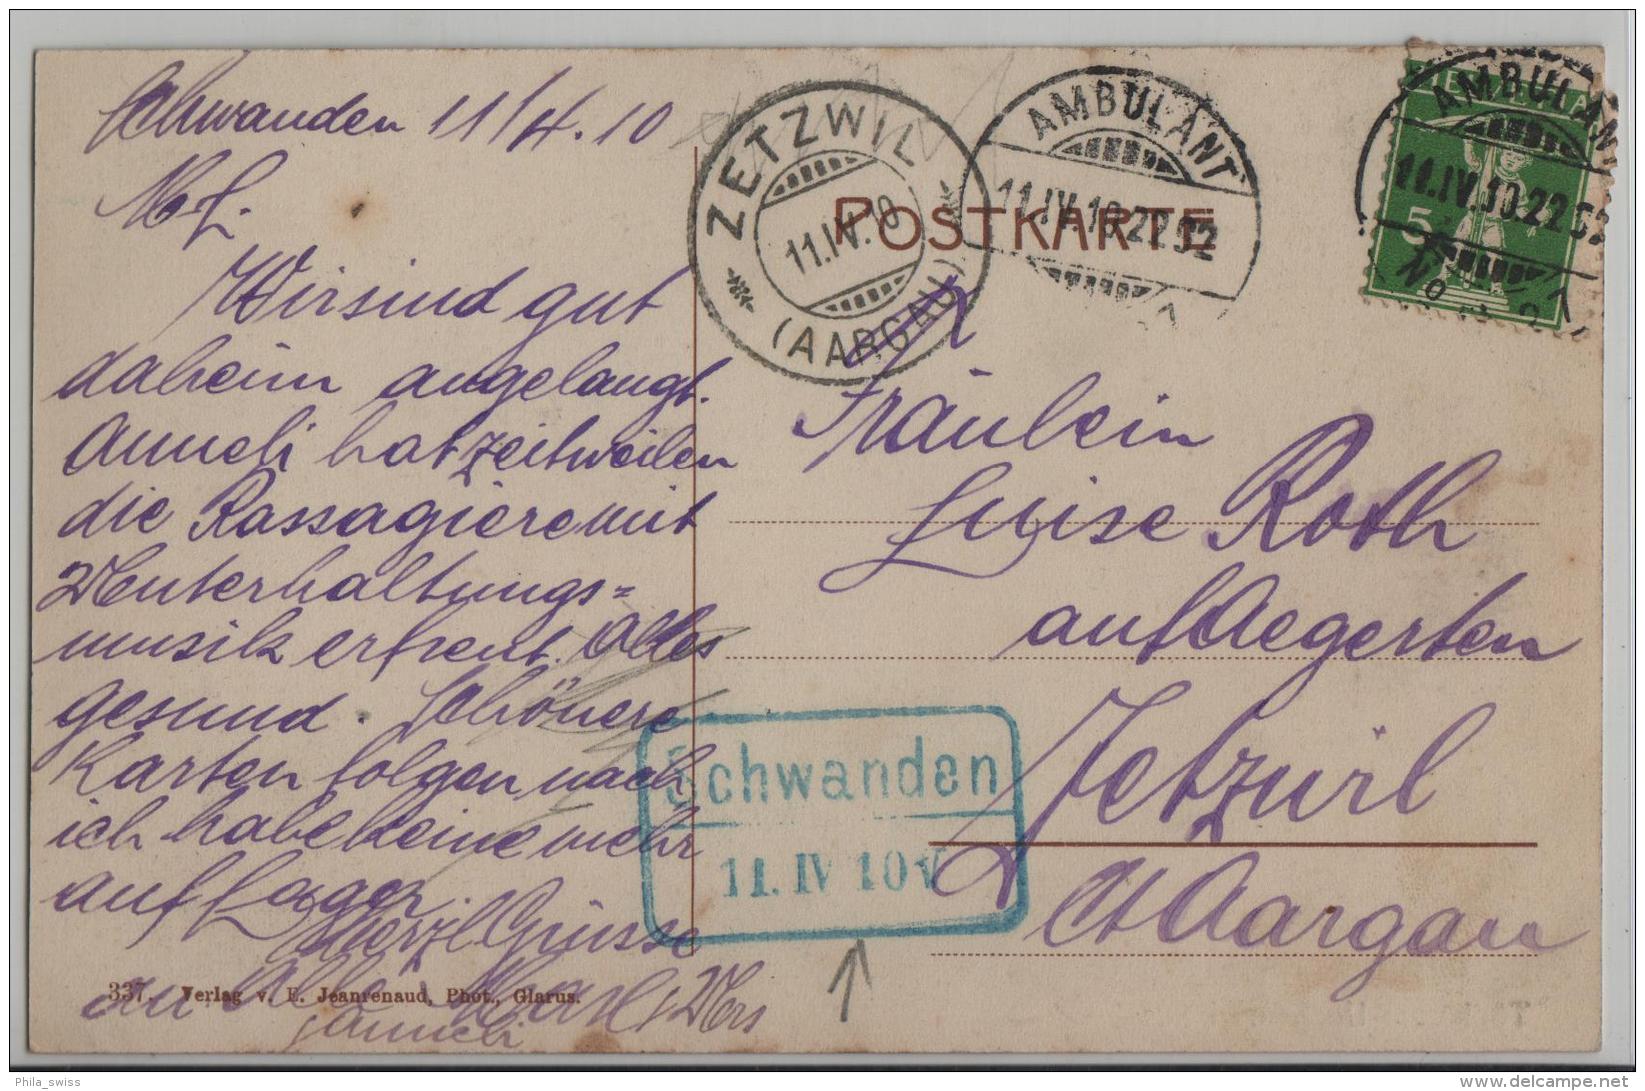 Schwanden 11/4.10
M. L.
Wir sind gut
daheim angelangt.
Anneli hat zeitweilen
die Passagiere mit
Unterhaltungs=
musik erfreut. Alles
gesund. Schönere
Karten folgen nach
ich habe keine mehr
auf Lager.
Herzl Grüsse
an Alle
Anneli
337. Verlag v. E. Jeanrenaud, Phot., Glarus.
ZETZWIL
11.IV.10
(AARGAU)
AMBULANT
11.IV.10.22
POSTKARTE
AMBULANT
11.IV.10.22
HELVETIA
5
No
Fräulein
Luise Roth
auf Aegerten
Zetzwil
Ct Aargau
Schwanden
11. IV 10 V
Phila_swiss
delcampe.net